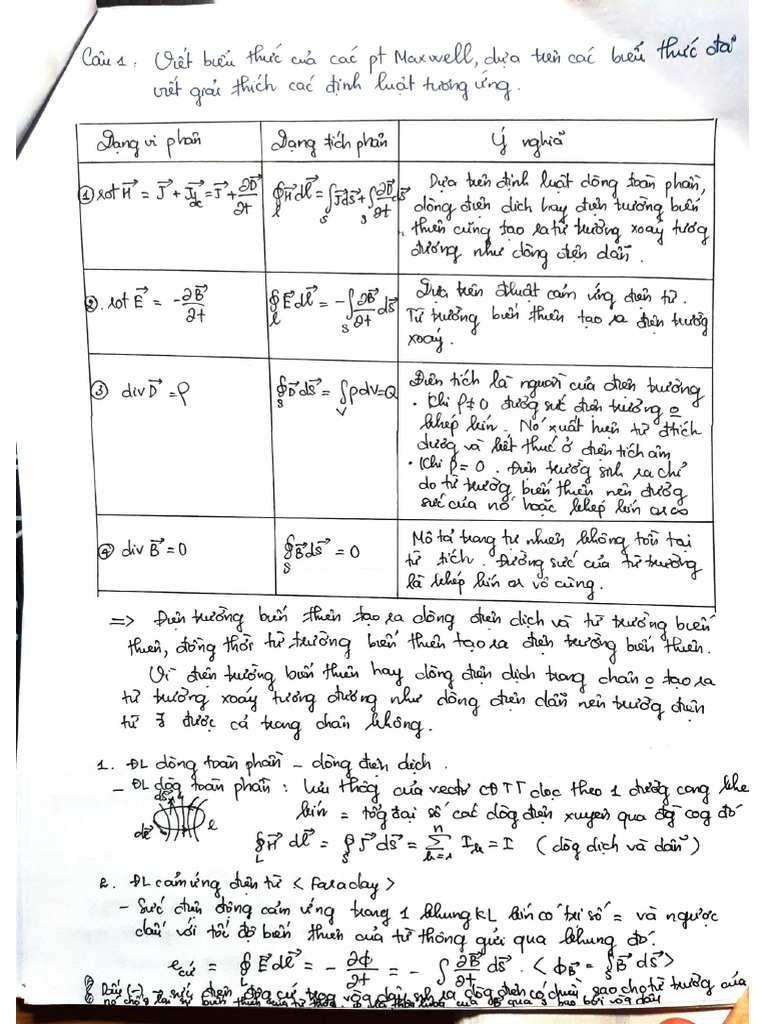 Câu 1: Viết biểu thức của các pt Maxwell, dựa trên các biểu thức đã
viết giải thích các định luật tương ứng.
Dạng vi phân
Dạng tích phân
Ý nghĩa
① rot H⃗ = J⃗ + J⃗dc = J⃗ + ∂D⃗/∂t
∮l H⃗dl⃗ = ∫S J⃗ds⃗ + ∫S ∂D⃗/∂t ds⃗
Dựa trên định luật dòng toàn phần,
dòng điện dịch hay điện trường biến
thiên cũng tạo ra từ trường xoáy tương
đương như dòng điện dẫn.
②. rot E⃗ = -∂B⃗/∂t
∮l E⃗dl⃗ = -∫S ∂B⃗/∂t ds⃗
Dựa trên đluật cảm ứng điện từ.
Từ trường biến thiên tạo ra điện trường
xoáy.
③ div D⃗ = ρ
∮S D⃗ds⃗ = ∫V ρdv = Q
Điện tích là nguồn của điện trường
• Khi ρ≠0 đường sức điện trường o
khép kín. Nó xuất hiện từ đtích
dương và kết thúc ở điện tích âm
• Khi ρ=0. Điện trường sinh ra chỉ
do từ trường biến thiên nên đường
sức của nó hoặc khép kín or ∞
④ div B⃗ = 0
∮S B⃗ds⃗ = 0
Mô tả trong tự nhiên không tồn tại
từ tích. Đường sức của từ trường
là khép kín or vô cùng.
=> Điện trường biến thiên tạo ra dòng điện dịch và từ trường biến
thiên, đồng thời từ trường biến thiên tạo ra điện trường biến thiên.
Vì điện trường biến thiên hay dòng điện dịch trong chân o tạo ra
từ trường xoáy tương đương như dòng điện dẫn nên trường điện
từ ∃ được cả trong chân không.
1. ĐL dòng toàn phần - dòng điện dịch.
- ĐL dòg toàn phần: Lưu thông của vectơ CĐTT dọc theo 1 đường cong khé
kín = tổg đại số các dòg điện xuyên qua đg cog đó
ds⃗
dl⃗
l
∮L H⃗ dl⃗ = ∮S J⃗ds⃗ = Σ(k=1→n) Ik = I (dòg dịch và dẫn)
2. ĐL cảm ứng điện từ <Faraday>
- Sức điện động cảm ứng trong 1 khung KL kín có trị số = và ngược
dấu với tốc độ biến thiên của từ thông gửi qua khung đó.
ecứ = ∮L E⃗dl⃗ = -∂Φ/∂t = -∫ ∂B⃗/∂t ds⃗. <ΦB = ∫S B⃗ ds⃗>
Dấu (-): sức điện độg cứ trog vòg dây sinh ra dòg điện có chiều sao cho từ trường của
nó chốg lại sự biến thiên của từ